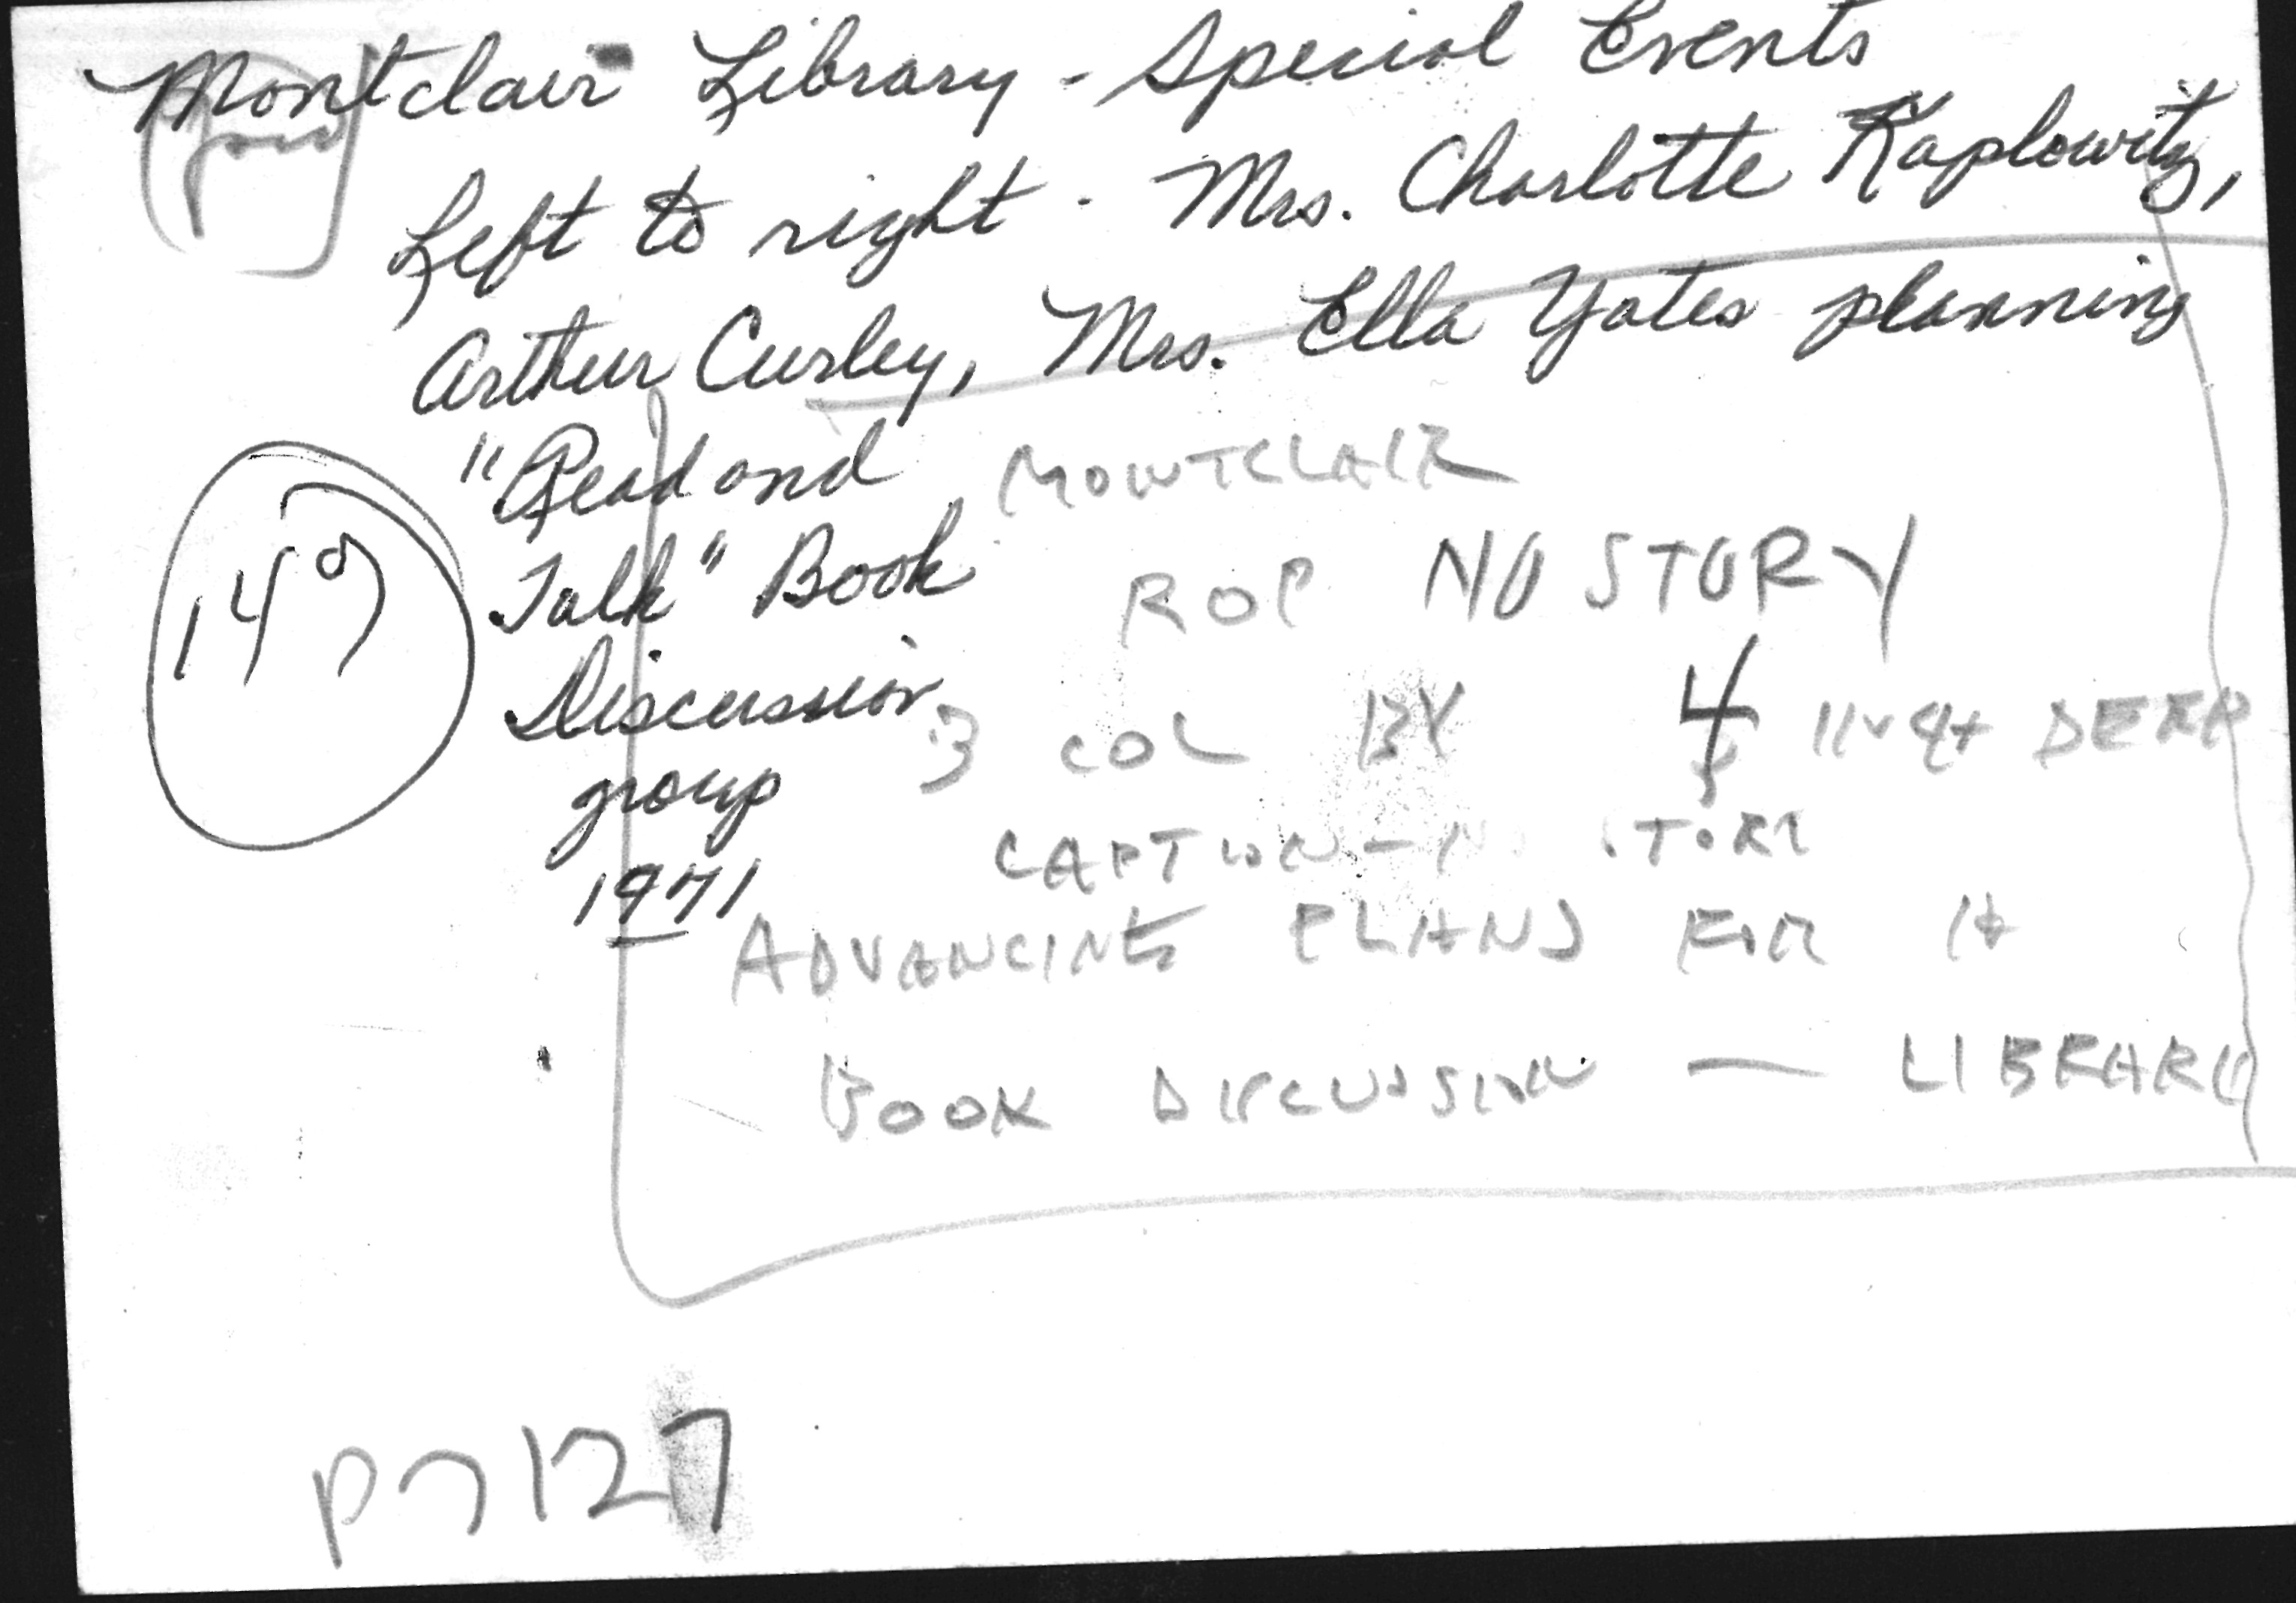 Montclair Library - Special Events
Left to right - Mrs. Charlotte Kaplowitz,
Arthur Curley, Mrs. Ella Yates planning
"Read and
Talk" Book
Discussion
group
1971
149
MONTCLAIR
ROP NO STORY
3 COL BY 4 DEEP
CAPTION - NO STORY
ADVANCING PLANS FOR
BOOK DISCUSSION — LIBRARY
P7127